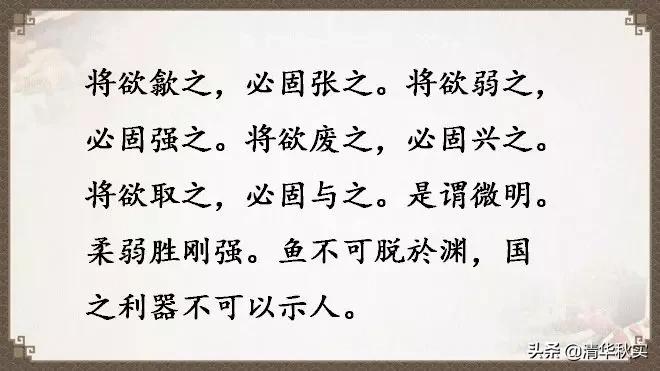 将欲歙之，必固张之。将欲弱之，
必固强之。将欲废之，必固兴之。
将欲取之，必固与之。是谓微明。
柔弱胜刚强。鱼不可脱於渊，国
之利器不可以示人。
头条 @清华秋实